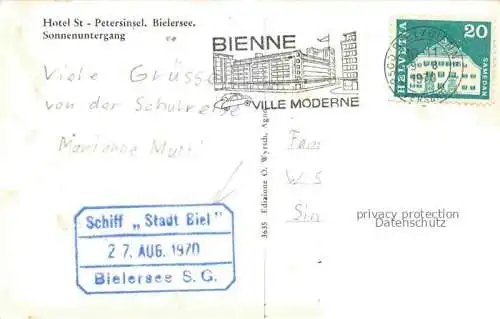 Hotel St - Petersinsel. Bielersee.
Sonnenuntergang
BIENNE
VILLE MODERNE
HELVETIA
20
SAMEDAN
1970
Viele Grüsse
von der Schulreise
Marianne
Schiff „Stadt Biel"
27. AUG. 1970
Bielersee S. G.
3635 Edizione O. Wyrsch,
Fam
W S
Sin
privacy protection
Datenschutz